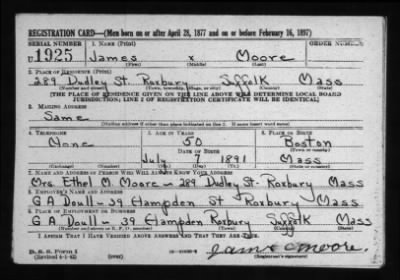 REGISTRATION CARD—(Men born on or after April 28, 1877 and on or before February 16, 1897)
SERIAL NUMBER 1. NAME (Print) ORDER NUMBER
U 1925 James x Moore
(First) (Middle) (Last)
2. PLACE OF RESIDENCE (Print)
289 Dudley St. Roxbury Suffolk Mass
(Number and street) (Town, township, village, or city) (County) (State)
[THE PLACE OF RESIDENCE GIVEN ON THE LINE ABOVE WILL DETERMINE LOCAL BOARD
JURISDICTION; LINE 2 OF REGISTRATION CERTIFICATE WILL BE IDENTICAL]
3. MAILING ADDRESS
Same
[Mailing address if other than place indicated on line 2. If same insert word same]
4. TELEPHONE 5. AGE IN YEARS 6. PLACE OF BIRTH
None 50 Boston
DATE OF BIRTH (Town or county)
July 7 1891 Mass
(Exchange) (Number) (Mo.) (Day) (Yr.) (State or country)
7. NAME AND ADDRESS OF PERSON WHO WILL ALWAYS KNOW YOUR ADDRESS
Mrs. Ethel M. Moore - 289 Dudley St - Roxbury Mass
8. EMPLOYER'S NAME AND ADDRESS
G A Doull - 39 Hampden St Roxbury Mass
9. PLACE OF EMPLOYMENT OR BUSINESS
G A Doull - 39 Hampden Roxbury Suffolk Mass
(Number and street or R. F. D. number) (Town) (County) (State)
I AFFIRM THAT I HAVE VERIFIED ABOVE ANSWERS AND THAT THEY ARE TRUE.
D. S. S. Form 1
(Revised 4-1-42) (over)